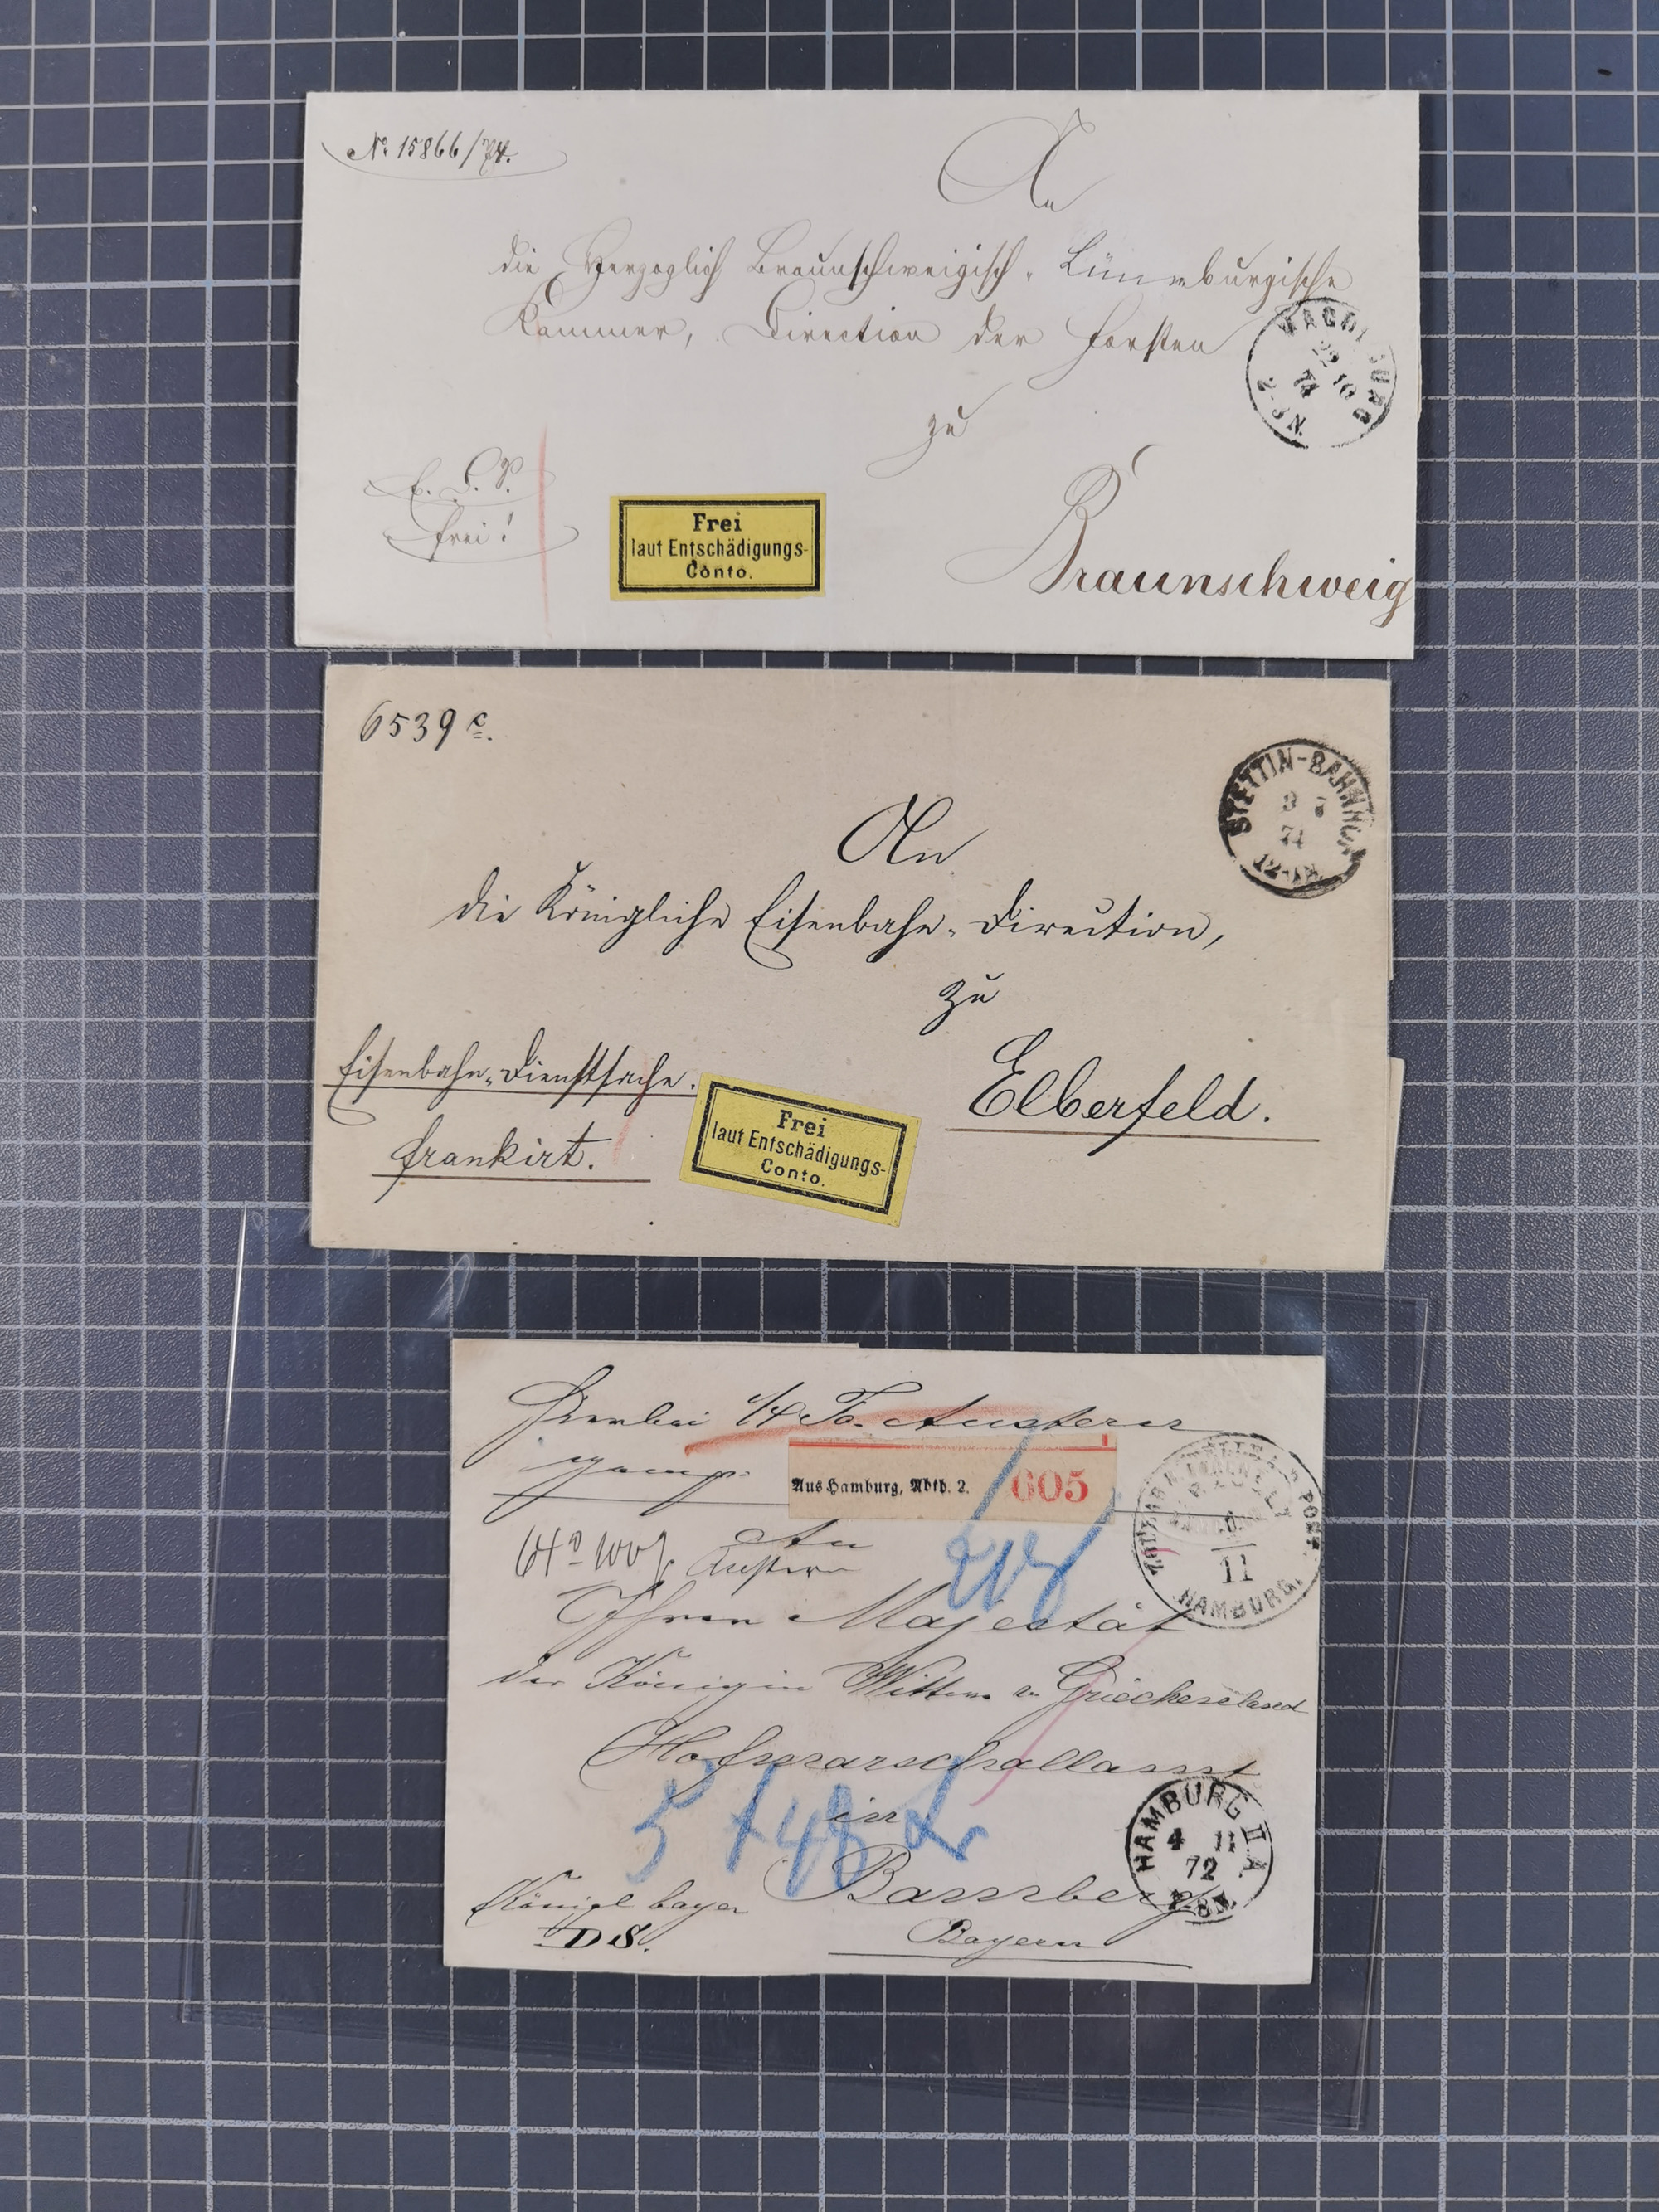 No 15866/74.
An
die Herzoglich Braunschweigisch-Lüneburgische
Kammer, Direction der Forsten
MAGDEBURG
22 10
74
N. 1-2
zu
E. D. S.
frei!
Frei
laut Entschädigungs-
Conto.
Braunschweig
6539 c.
STETTIN-BAHNHOF
3 7
74
12-1N
An
die Königliche Eisenbahn-Direction,
zu
Eisenbahn-Dienstsache.
frankirt.
Elberfeld.
Frei
laut Entschädigungs-
Conto.
Hierbei 1/4 To. Austern
Aus Hamburg, Abth. 2.
605
POST
11
HAMBURG.
An
Austern
Ihrer Majestät
der Königin Wittwe v. Griechenland
Hofmarschallamt
in
5 +48 Kr
HAMBURG II A.
4 11
72
Bamberg
Königl bayer
D S.
Bayern